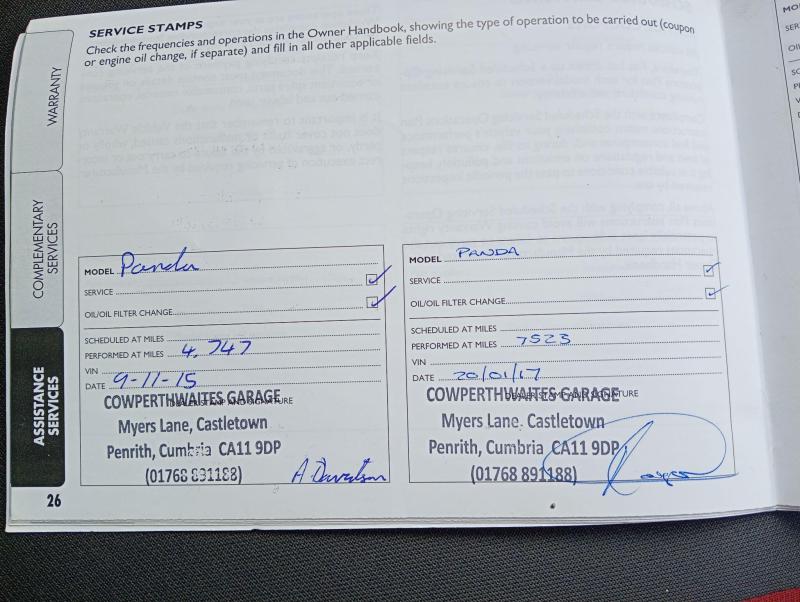 SERVICE STAMPS
Check the frequencies and operations in the Owner Handbook, showing the type of operation to be carried out (coupon
or engine oil change, if separate) and fill in all other applicable fields.
WARRANTY
COMPLEMENTARY
SERVICES
ASSISTANCE
SERVICES
MODEL Panda
SERVICE
OIL/OIL FILTER CHANGE
SCHEDULED AT MILES
PERFORMED AT MILES 4,747
VIN
DATE 9-11-15
DEALER STAMP AND SIGNATURE
COWPERTHWAITES GARAGE
Myers Lane, Castletown
Penrith, Cumbria CA11 9DP
(01768 891188)
A Davidson
MODEL PANDA
SERVICE
OIL/OIL FILTER CHANGE
SCHEDULED AT MILES
PERFORMED AT MILES 7523
VIN
DATE 20/01/17
DEALER STAMP AND SIGNATURE
COWPERTHWAITES GARAGE
Myers Lane, Castletown
Penrith, Cumbria CA11 9DP
(01768 891188)
26
MO
SER
OIL